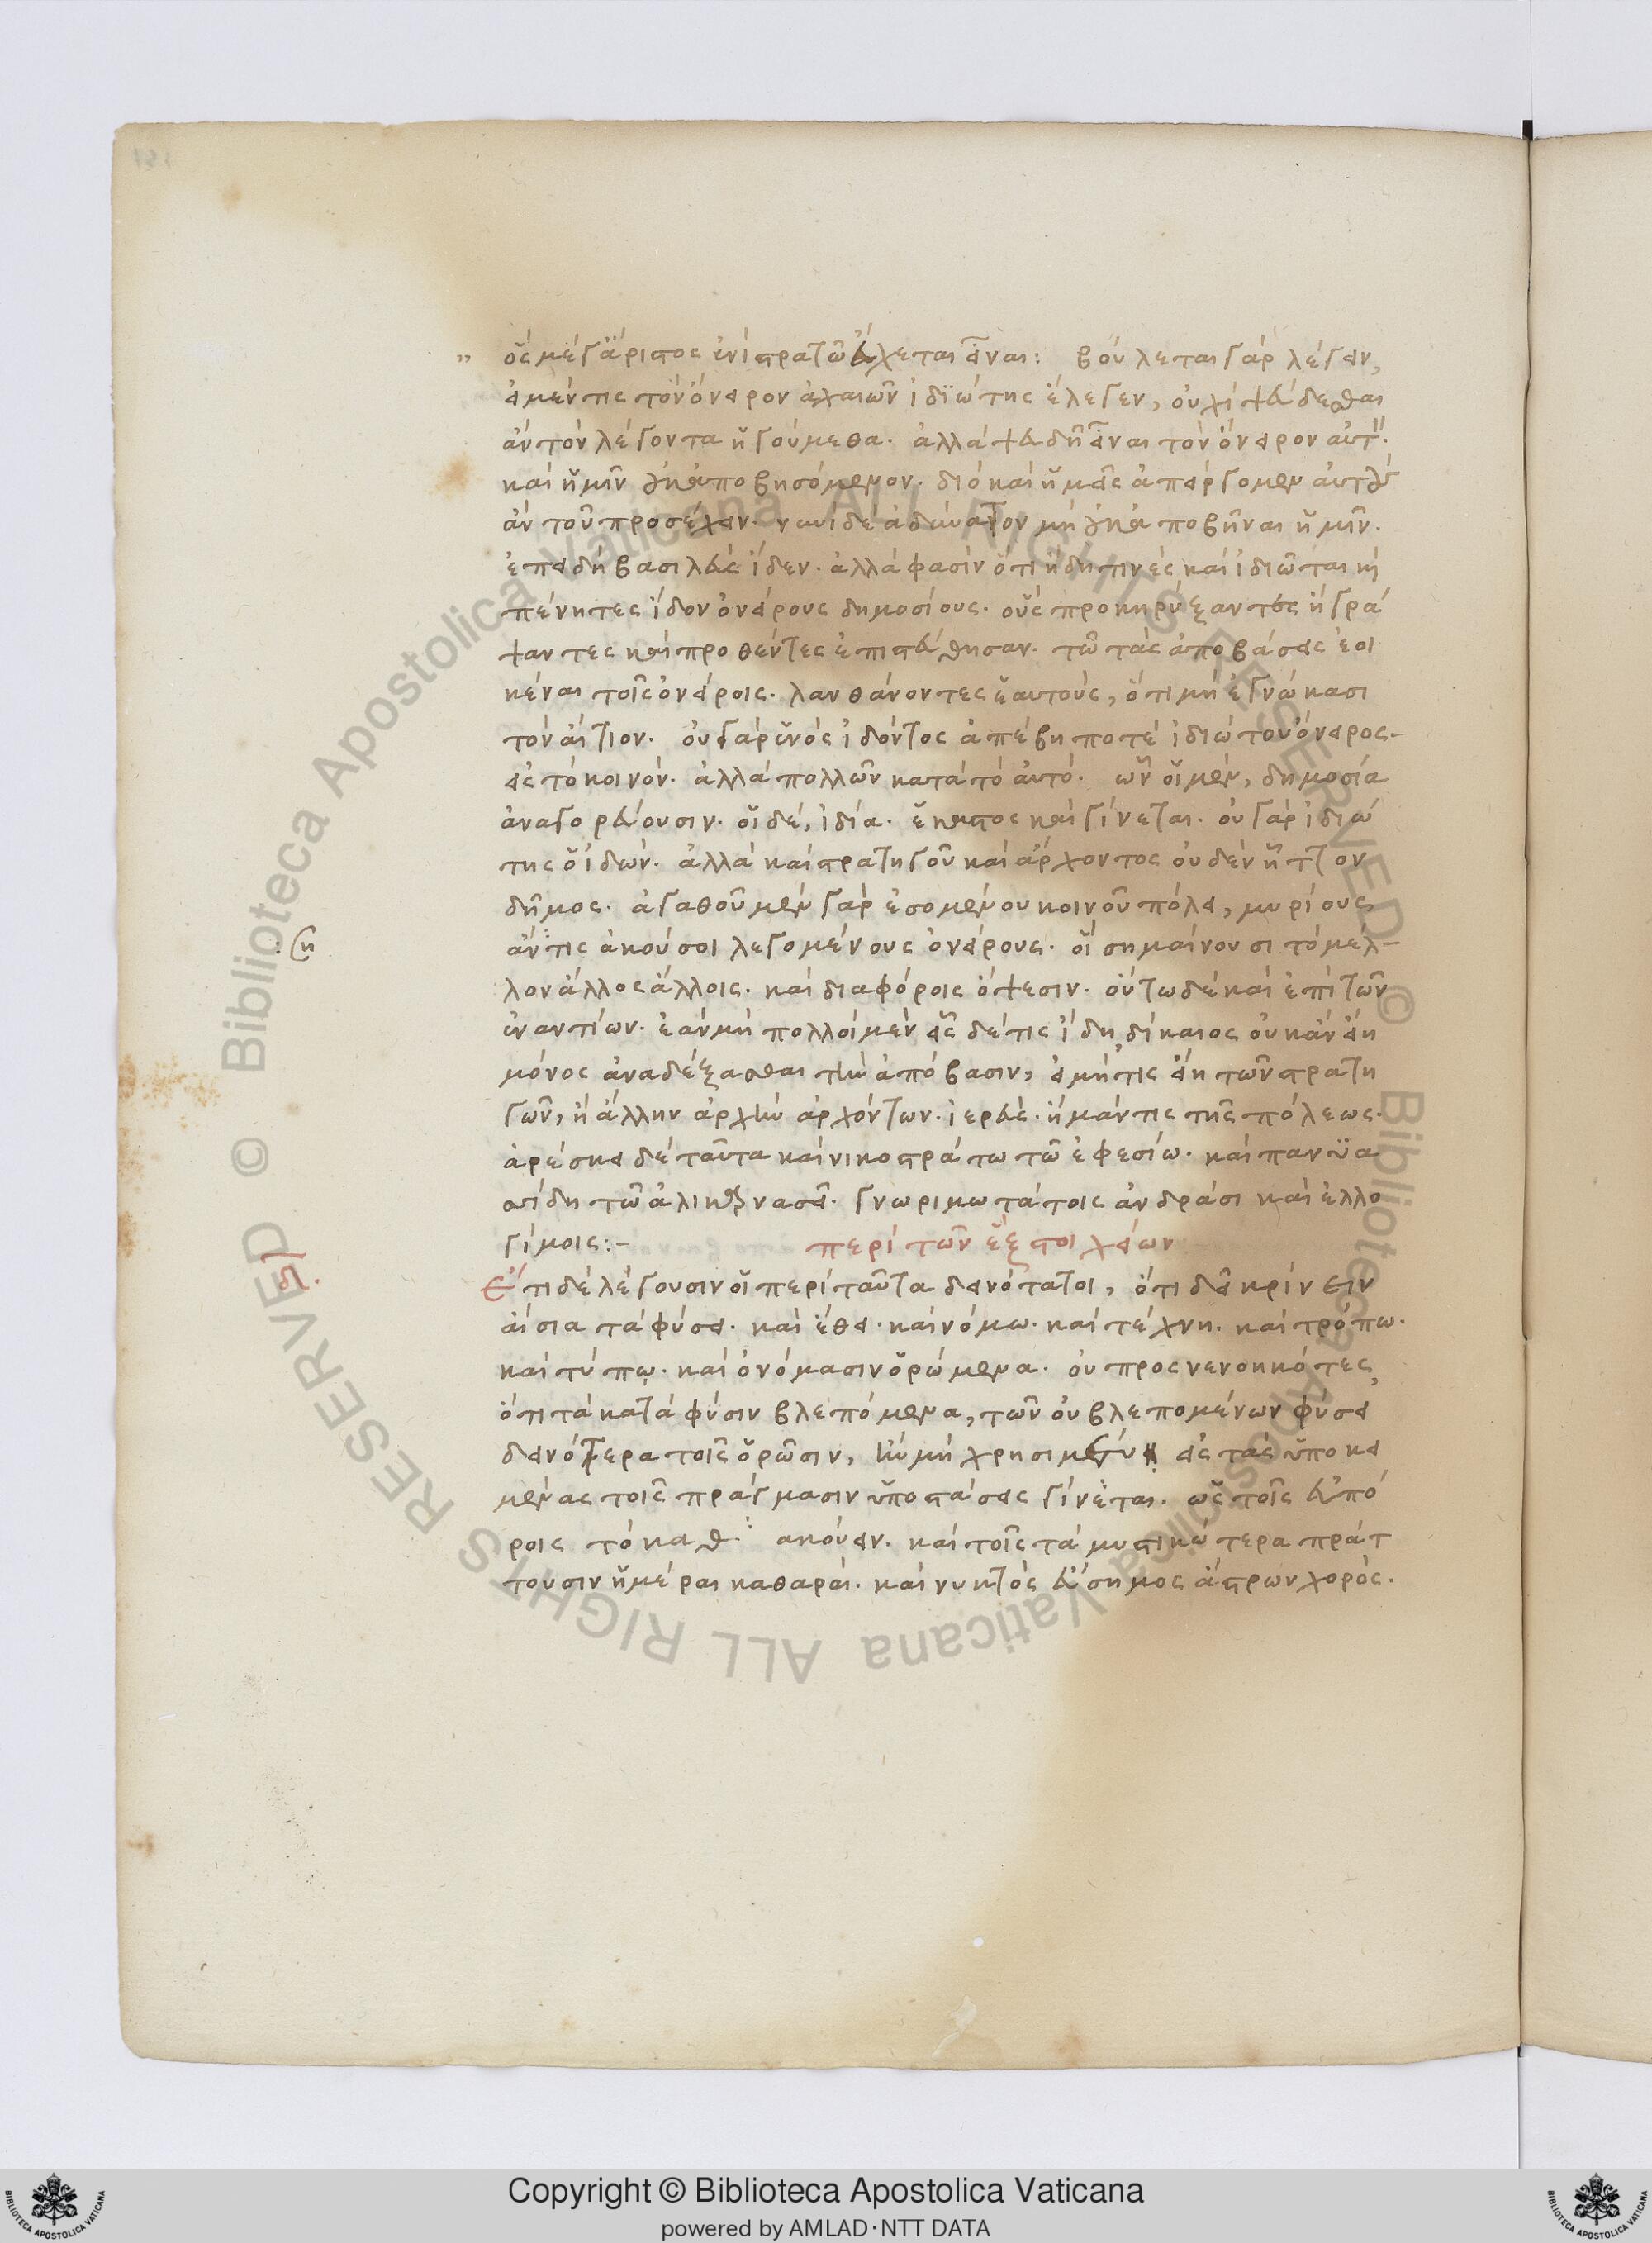 ” ὅς μέγ ἄριστος ἐνὶ στρατῶ ἔυχεται εἶναι: βούλεται γὰρ λέγειν,
εἰ μέν τις τὸν ὄνειρον ἀχαιῶν ἰδιώτης ἔλεγεν, οὐχὶ ψεύδεσθαι
ἂν τὸν λέγοντα ἡγούμεθα. ἀλλὰ ψευδῆ εἶναι τὸν ὄνειρον αὐτ
καὶ ἡμῖν οὐκ ἀποβησόμενον. διὸ καὶ ἡμᾶς ἀπείργομεν αὐτοῦ
ἂν τοῦ προσέχειν. νυνὶ δὲ ἀδύνατον μὴ οὐκ ἀποβῆναι ἡμῖν.
ἐπειδὴ βασιλεὺς ἴδεν. ἀλλὰ φασὶν ὅτι ἤδη τινὲς καὶ ἰδιῶται κ
πένητες ἴδον ὀνείρους δημοσίους. οὓς προκηρύξαντες ἢ γρά
ψαντες καὶ προθέντες ἐπιστεύθησαν. τῶ τὰς ἀποβάσεις ἐοι
κέναι τοῖς ὀνείροις. λανθάνοντες ἑαυτούς, ὅτι μὴ ἐγνώκασι
τὸν αἴτιον. οὐ γὰρ ἑνὸς ἰδόντος ἀπέβη ποτὲ ἰδιώτου ὄνειρος-
εἰς τὸ κοινόν. ἀλλὰ πολλῶν κατὰ τὸ αὐτό. ὧν οἱ μὲν, δημοσία
ἀναγορεύουσιν. οἱ δὲ, ἰδία. ἕκαστος καὶ γίνεται. οὐ γὰρ ἰδιώ
της ὁ ἰδών. ἀλλὰ καὶ στρατηγοῦ καὶ ἄρχοντος οὐδὲν ἧττον
δῆμος. ἀγαθοῦ μὲν γὰρ ἐσομένου κοινοῦ πόλει, μυρίους,
:ση ἄν τις ἀκούσοι λεγομένους ὀνείρους. οἳ σημαίνουσι τὸ μέλ-
λον ἄλλος ἄλλοις. καὶ διαφόροις ὄψεσιν. οὕτω δὲ καὶ ἐπὶ τῶν
ἐναντίων. ἐὰν μὴ πολλοὶ μὲν εἷς δέ τις ἴδη, δίκαιος οὐκ ἂν εἴη
μόνος ἀναδέξασθαι τὴν ἀπόβασιν, εἰ μή τις εἴη τῶν στρατη
γῶν, ἢ ἄλλην ἀρχὴν ἀρχόντων. ἱερεὺς. ἢ μάντις τῆς πόλεως.
ἀρέσκει δὲ ταῦτα καὶ νικοστράτω τῶ ἐφεσίω. καὶ πανϋα
σίδη τῶ ἁλικαρνασεῖ. γνωριμωτάτοις ἀνδράσι καὶ ἐλλο
γίμοις:- περὶ τῶν ἓξ στοιχείων
Ἔτι δὲ λέγουσιν οἱ περὶ ταῦτα δεινότατοι, ὅτι δεῖ κρίνειν
αἴσια τὰ φύσει. καὶ ἔθει. καὶ νόμω. καὶ τέχνη. καὶ τρόπω.
καὶ τύπω. καὶ ὀνόμασιν ὁρώμενα. οὐ προσνενοηκότες,
ὅτι τὰ κατὰ φύσιν βλεπόμενα, τῶν οὐ βλεπομένων φύσει
δεινότερα τοῖς ὁρῶσιν, ἢν μὴ χρησιμεύη εἰς τὰς ὑποκει
μένας τοῖς πράγμασιν ὑποστάσεις γίνεται. ὡς τοῖς εὐπό
ροις τὸ καθ ακούειν. καὶ τοῖς τὰ μυστικώτερα πράτ
τουσιν ἡμέραι καθαραὶ. καὶ νυκτὸς εὔσημος ἄστρων χορὸς.
Copyright © Biblioteca Apostolica Vaticana
powered by AMLAD·NTT DATA